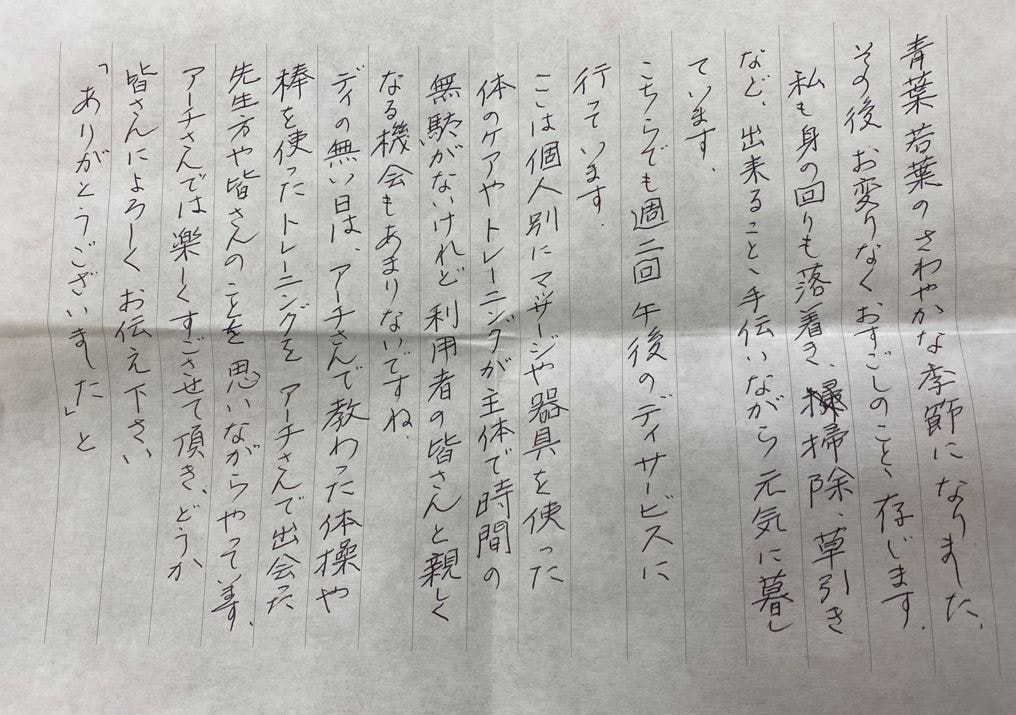 青葉若葉のさわやかな季節になりました、
その後お変りなくおすごしのことゝ存じます.
私も身の回りも落着き、掃除、草引き
など、出来ること、手伝いながら元気に暮し
ています.
こちらでも週二回午後のディサービスに
行っています.
ここは個人別にマッサージや器具を使った
体のケアやトレーニングが主体で時間の
無駄がないけれど利用者の皆さんと親しく
なる機会もあまりないですね.
ディの無い日は、アーチさんで教わった体操や
棒を使ったトレーニングを アーチさんで出会った
先生方や皆さんのことを思いながらやって居ます.
アーチさんでは楽しくすごさせて頂き、どうか
皆さんによろしくお伝え下さい
「ありがとうございました」と